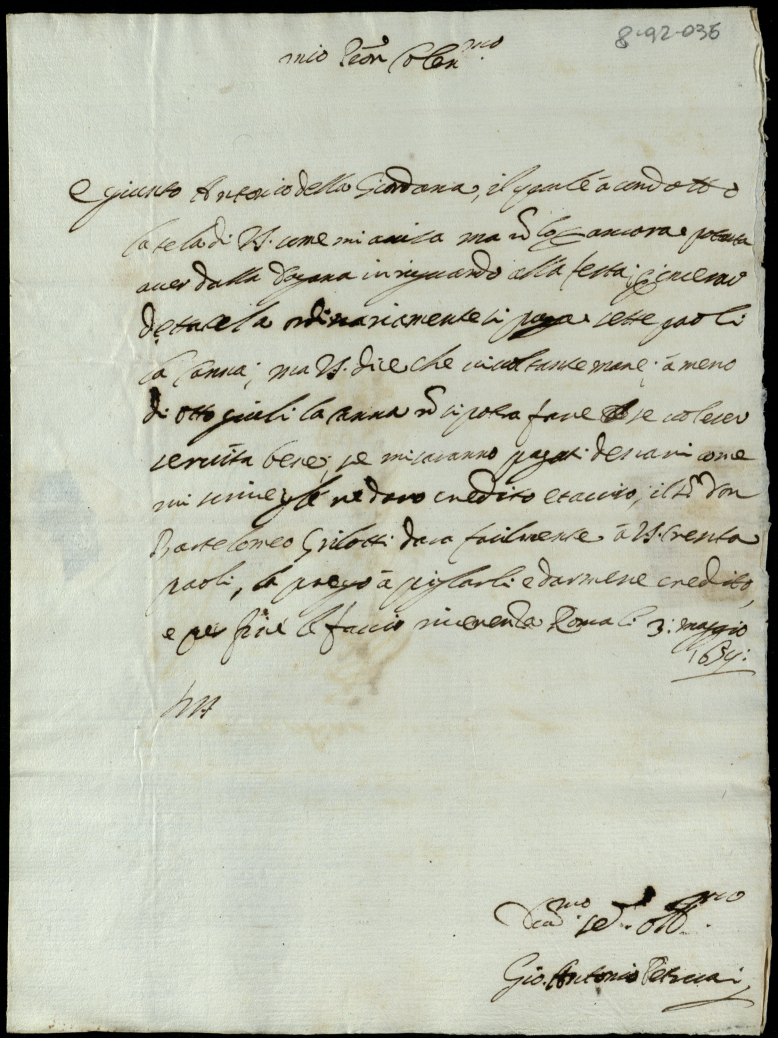 8-92-036
mio Pron Colen.mo
e giunto Antonio della Giordana, il quale à condotto
la tela di VS. come mi avisa ma ancora potuta
aver dalla dogana in riguardo alla festa;
detta tela ordinariamente si paga sette paoli
la Canna; ma VS. dice che à meno
di otto giuli la canna si potra fare se voleser
servita bene; se mi saranno pagati come
mi scrive gle ne daro credito et aviso, il Sr Don
Bartolomeo Grilotti dara facilmente à VS. trenta
paoli, la prego à pigliarli e darmene credito,
e per fine le faccio riverenza Roma li 3: maggio
VS
Ser. Obb.mo
Gio. Antonio Petrucci